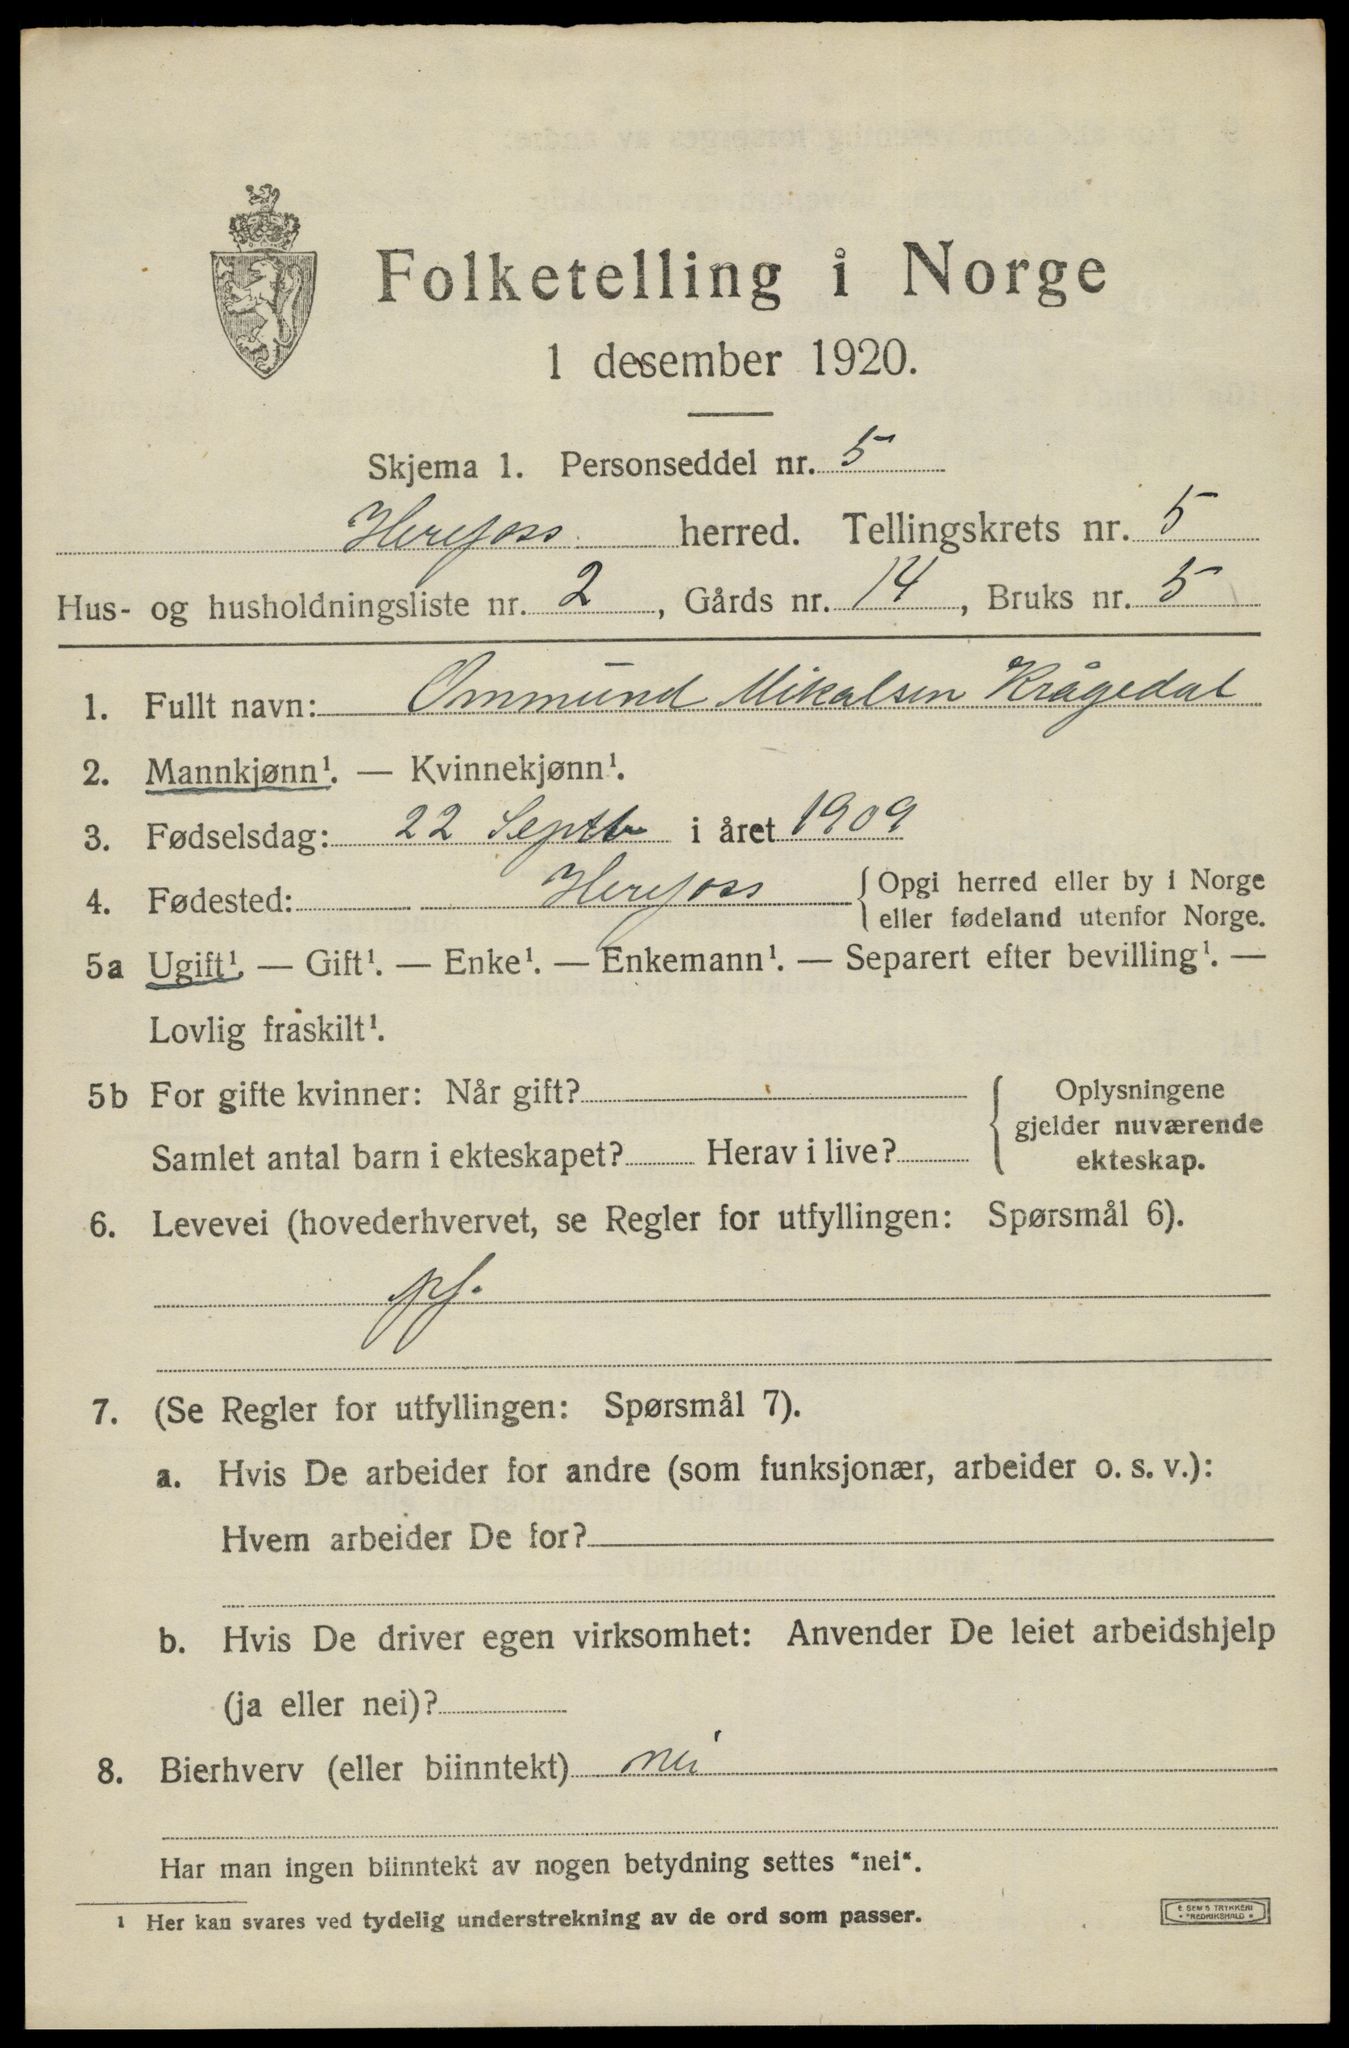 Folketelling i Norge
1 desember 1920.
Skjema 1. Personseddel nr. 5
Herefoss herred. Tellingskrets nr. 5
Hus- og husholdningsliste nr. 2, Gårds nr. 14, Bruks nr. 5
1. Fullt navn: Ommund Mikalsen Krågedal
2. Mannkjønn¹. — Kvinnekjønn¹.
3. Fødselsdag: 22 Septb i året 1909
4. Fødested: Herefoss { Opgi herred eller by i Norge
eller fødeland utenfor Norge.
5a Ugift¹. — Gift¹. — Enke¹. — Enkemann¹. — Separert efter bevilling¹. —
Lovlig fraskilt¹.
5b For gifte kvinner: Når gift?
Samlet antal barn i ekteskapet? Herav i live?
{ Oplysningene
gjelder nuværende
ekteskap.
6. Levevei (hovederhvervet, se Regler for utfyllingen: Spørsmål 6).
pf.
7. (Se Regler for utfyllingen: Spørsmål 7).
a. Hvis De arbeider for andre (som funksjonær, arbeider o. s. v.):
Hvem arbeider De for?
b. Hvis De driver egen virksomhet: Anvender De leiet arbeidshjelp
(ja eller nei)?
8. Bierhverv (eller biinntekt) nei
Har man ingen biinntekt av nogen betydning settes "nei".
¹ Her kan svares ved tydelig understrekning av de ord som passer.
E SEM'S TRYKKERI
* FREDRIKSHALD *